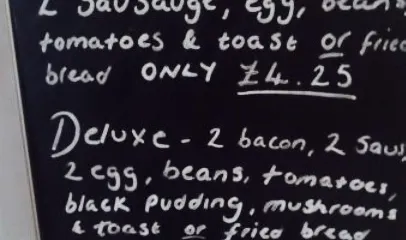 2 Sausauge, egg, beans,
tomatoes & toast or fried
bread ONLY £4.25
Deluxe - 2 bacon, 2 Saus
2 egg, beans, tomatoes,
black pudding, mushrooms
& toast or fried bread